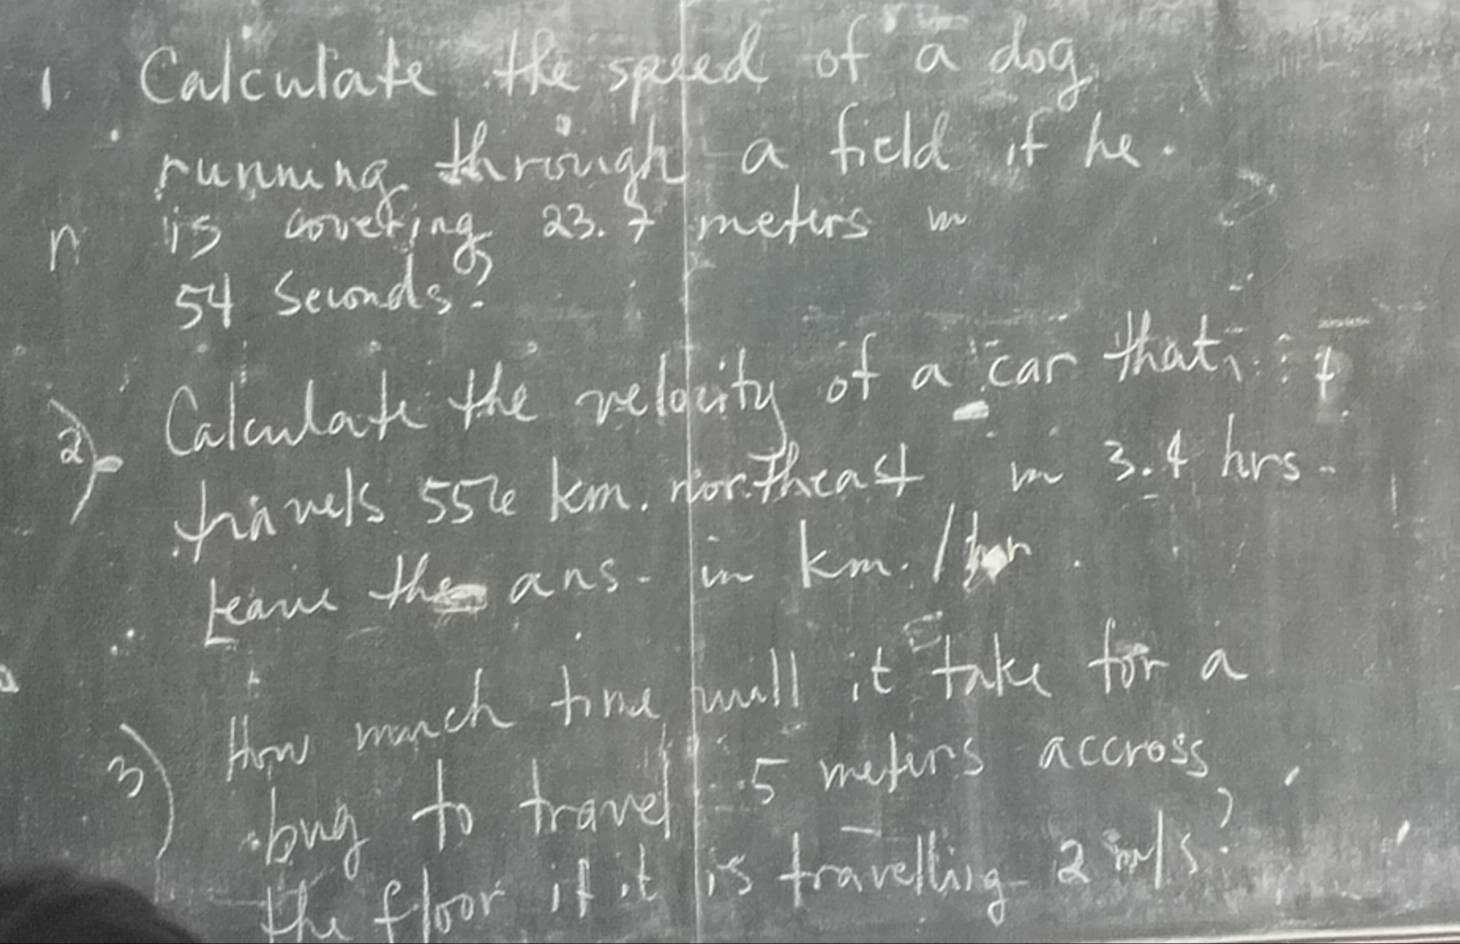 1. Calculate the speed of a dog
running through a field if he
is covering 23.7 meters in
54 Seconds?
2) Calculate the velocity of a car that
travels 556 km. northeast in 3.4 hrs.
Leave the ans. in km./hr.
3) How much time will it take for a
bug to travel 5 meters accross
the floor if it is travelling 2 m/s?